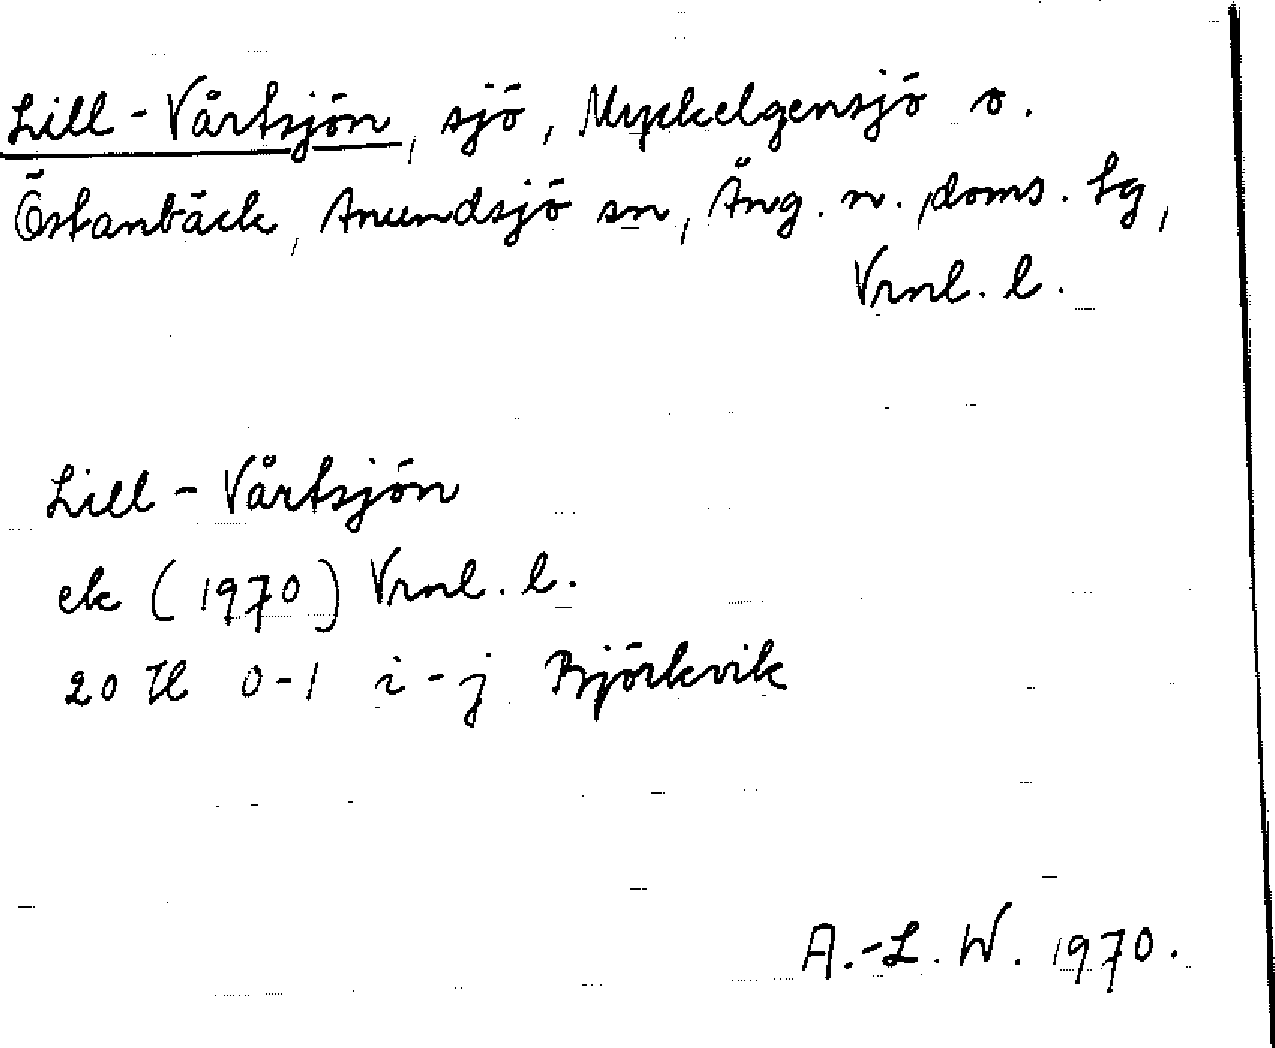 Lill-Vårtsjön, sjö, Myckelgensjö o.
Östanbäck, Anundsjö sn, Ång. n. doms. tg,
Vrnl. l.
Lill-Vårtsjön
ek (1970) Vrnl. l.
20 H 0-1 i-j Björkvik
A.-L. W. 1970.